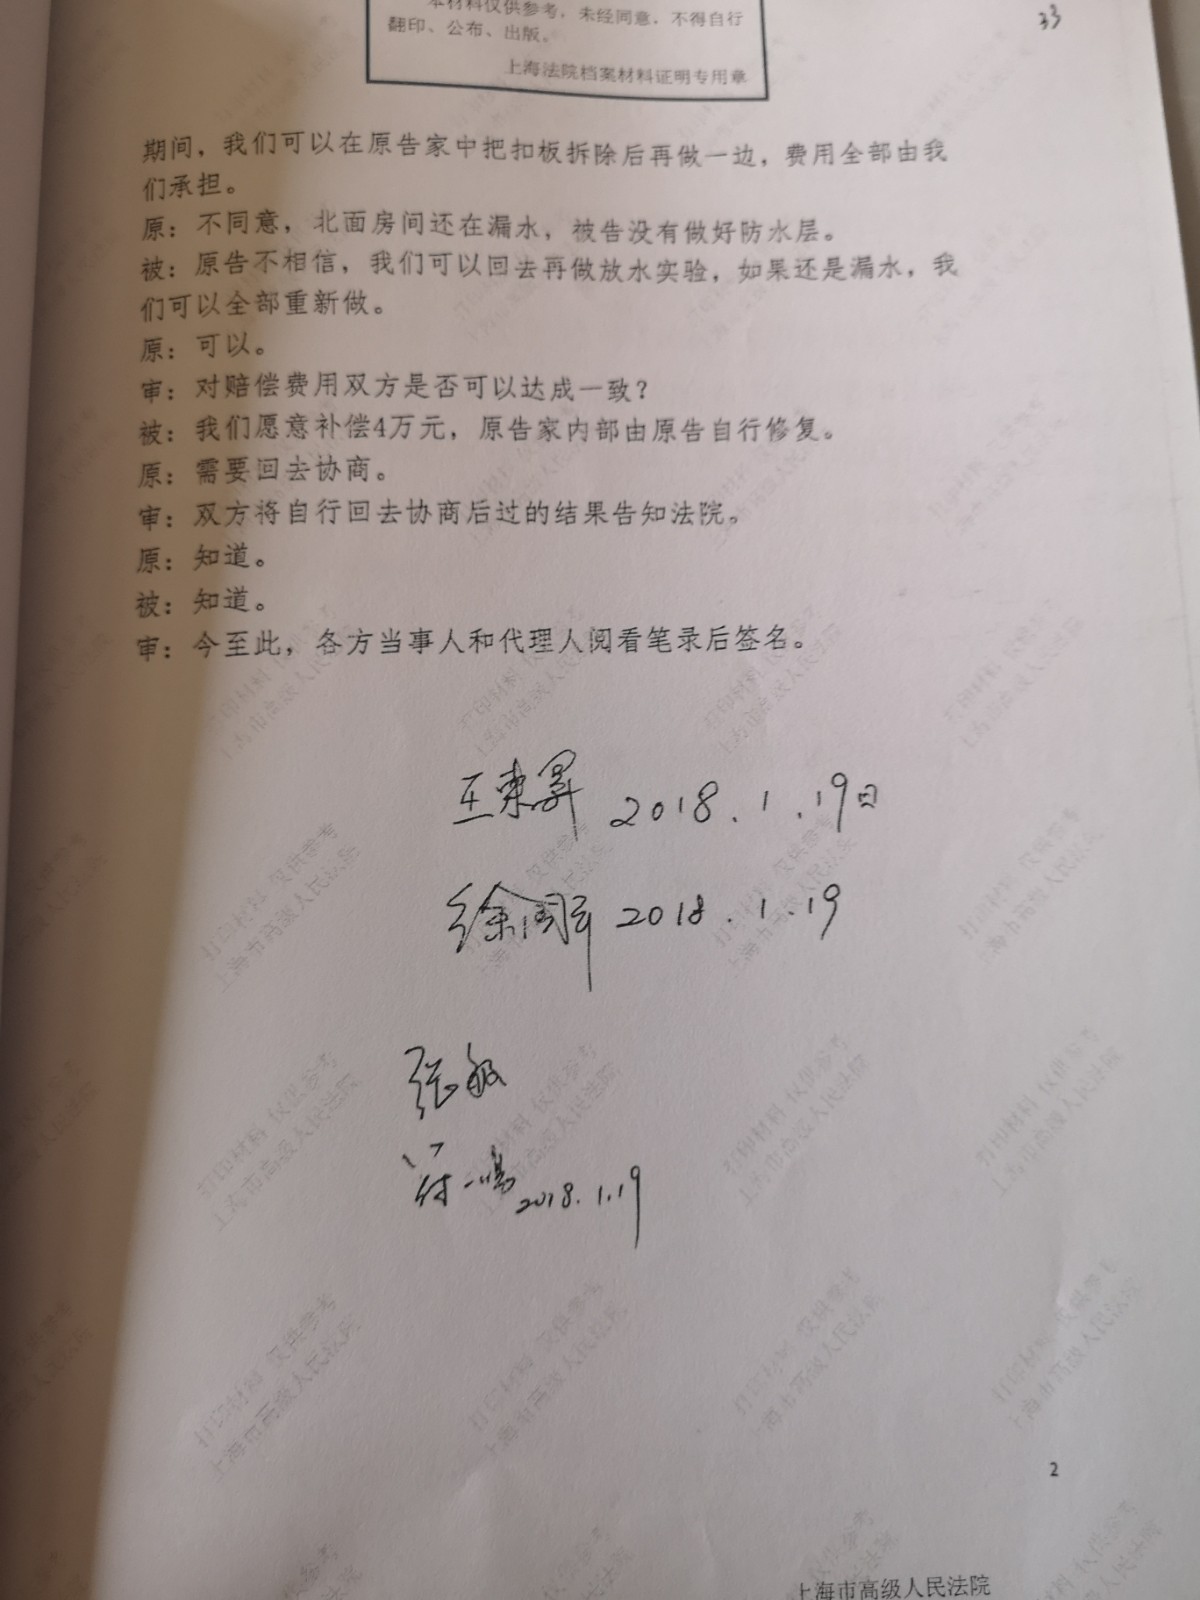 本材料仅供参考，未经同意，不得自行
翻印、公布、出版。
上海法院档案材料证明专用章
33
期间，我们可以在原告家中把扣板拆除后再做一边，费用全部由我
们承担。
原：不同意，北面房间还在漏水，被告没有做好防水层。
被：原告不相信，我们可以回去再做放水实验，如果还是漏水，我
们可以全部重新做。
原：可以。
审：对赔偿费用双方是否可以达成一致？
被：我们愿意补偿4万元，原告家内部由原告自行修复。
原：需要回去协商。
审：双方将自行回去协商后过的结果告知法院。
原：知道。
被：知道。
审：今至此，各方当事人和代理人阅看笔录后签名。
王東昇 2018.1.19日
徐 2018.1.19
张敏
一鸣 2018.1.19
打印材料 仅供参考
上海市高级人民法院
2
上海市高级人民法院